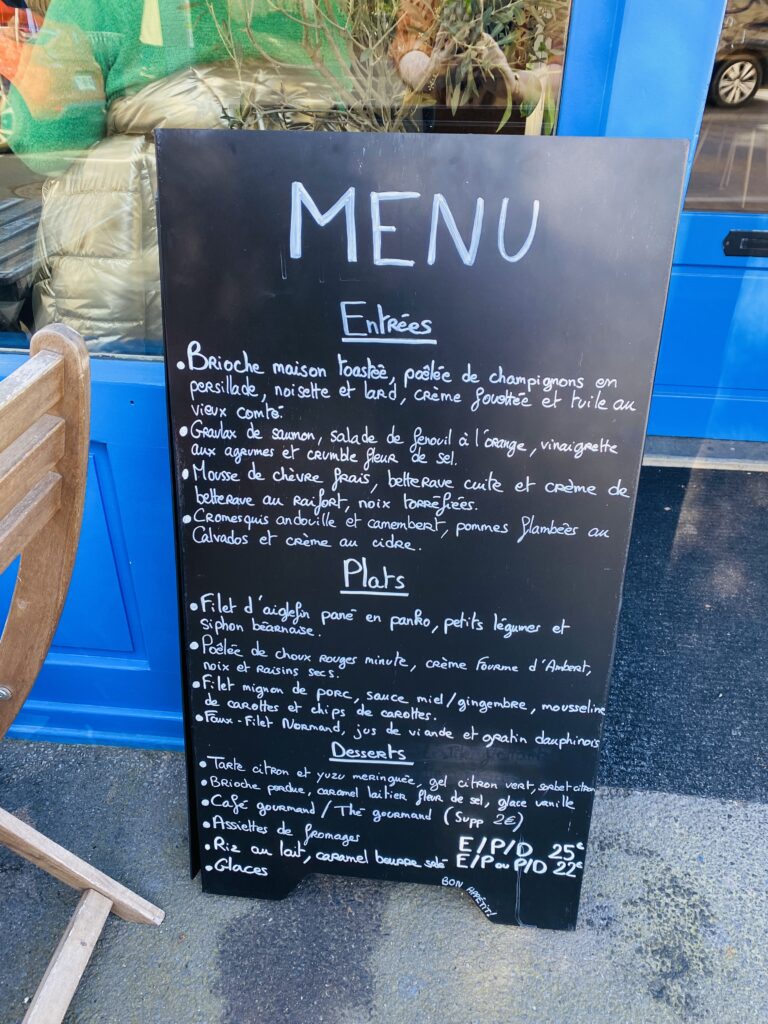 MENU
Entrées
• Brioche maison toastée, poêlée de champignons en
persillade, noisette et lard, crème fouettée et tuile au
vieux comté
• Gravlax de saumon, salade de fenouil à l'orange, vinaigrette
aux agrumes et crumble fleur de sel.
• Mousse de chèvre frais, betterave cuite et crème de
betterave au raifort, noix torréfiées.
• Cromesquis andouille et camembert, pommes flambées au
Calvados et crème au cidre.
Plats
• Filet d'aiglefin pané en panko, petits légumes et
siphon béarnaise.
• Poêlée de choux rouges minute, crème fourme d'Ambert,
noix et raisins secs.
• Filet mignon de porc, sauce miel/gingembre, mousseline
de carottes et chips de carottes.
• Faux-Filet Normand, jus de viande et gratin dauphinois
Desserts
• Tarte citron et yuzu meringuée, gel citron vert, sorbet citron
• Brioche perdue, caramel laitier fleur de sel, glace vanille
• Café gourmand / Thé gourmand (Supp 2€)
• Assiettes de fromages
• Riz au lait, caramel beurre salé
• Glaces
E/P/D 25€
E/P ou P/D 22€
BON APPÉTIT!